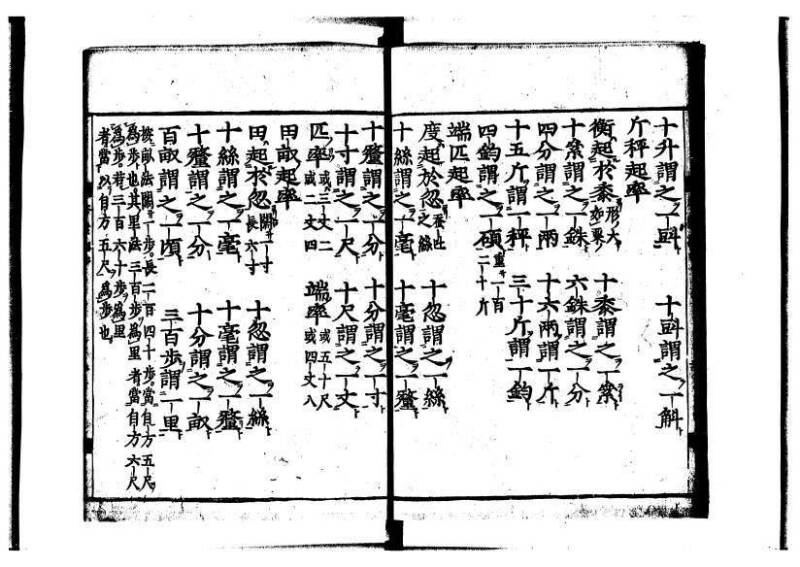 十升謂之一㪷 十㪷謂之一斛
斤秤起率
衡起於黍形大如粟 十黍謂之一絫
十絫謂之一銖 六銖謂之一分
四分謂之一兩 十六兩謂一斤
十五斤謂一秤 三十斤謂一鈞
四鈞謂之一碩重一百二十斤
端匹起率
度起於忽蚕吐之絲 十忽謂之一絲
十絲謂之一毫 十毫謂之一釐
十釐謂之一分 十分謂之一寸
十寸謂之一尺 十尺謂之一丈
匹率或三丈二或二丈四 端率或五十尺或四丈八
田畝起率
田起於忽闊一寸長六寸 十忽謂之一絲
十絲謂之一毫 十毫謂之一釐
十釐謂之一分 十分謂之一畝
百畝謂之一頃 三百步謂一里
按畝法闊一步長二百四十步當自方五尺
為步也其里法三百步為里者當自方六尺
為步若三百六十步為里
者當以自方五尺為步也